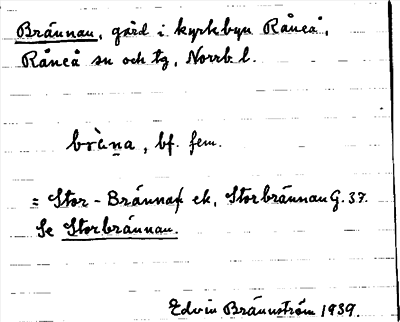 Brännan, gård i kyrkbyn Råneå,
Råneå sn och tg, Norrb. l.
brè̀ṉa, bf. fem.
= Stor-Brännan ek, Storbrännan G. 37.
Se Storbrännan.
Edvin Brännström 1939.